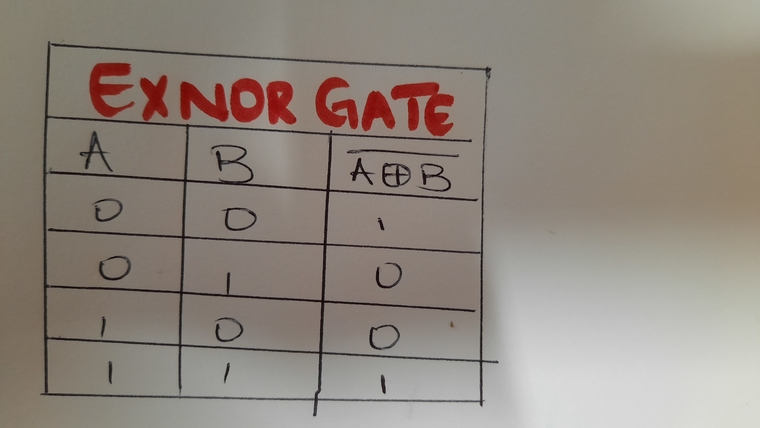 EXNOR GATE
A B A⊕B̅
0 0 1
0 1 0
1 0 0
1 1 1